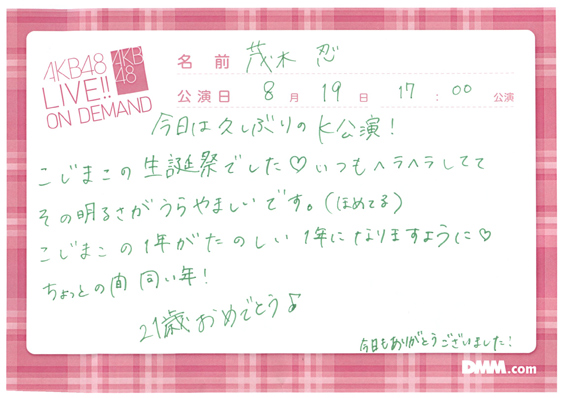 AKB48
LIVE!!
ON DEMAND
AKB
48
名前 茂木 忍
公演日 8月 19日 17:00 公演
今日は久しぶりのK公演!
こじまこの生誕祭でした♡いつもヘラヘラしてて
その明るさがうらやましいです。(ほめてる)
こじまこの1年がたのしい1年になりますように♡
ちょっとの間 同い年!
21歳おめでとう♪
今日もありがとうございました!
DMM.com